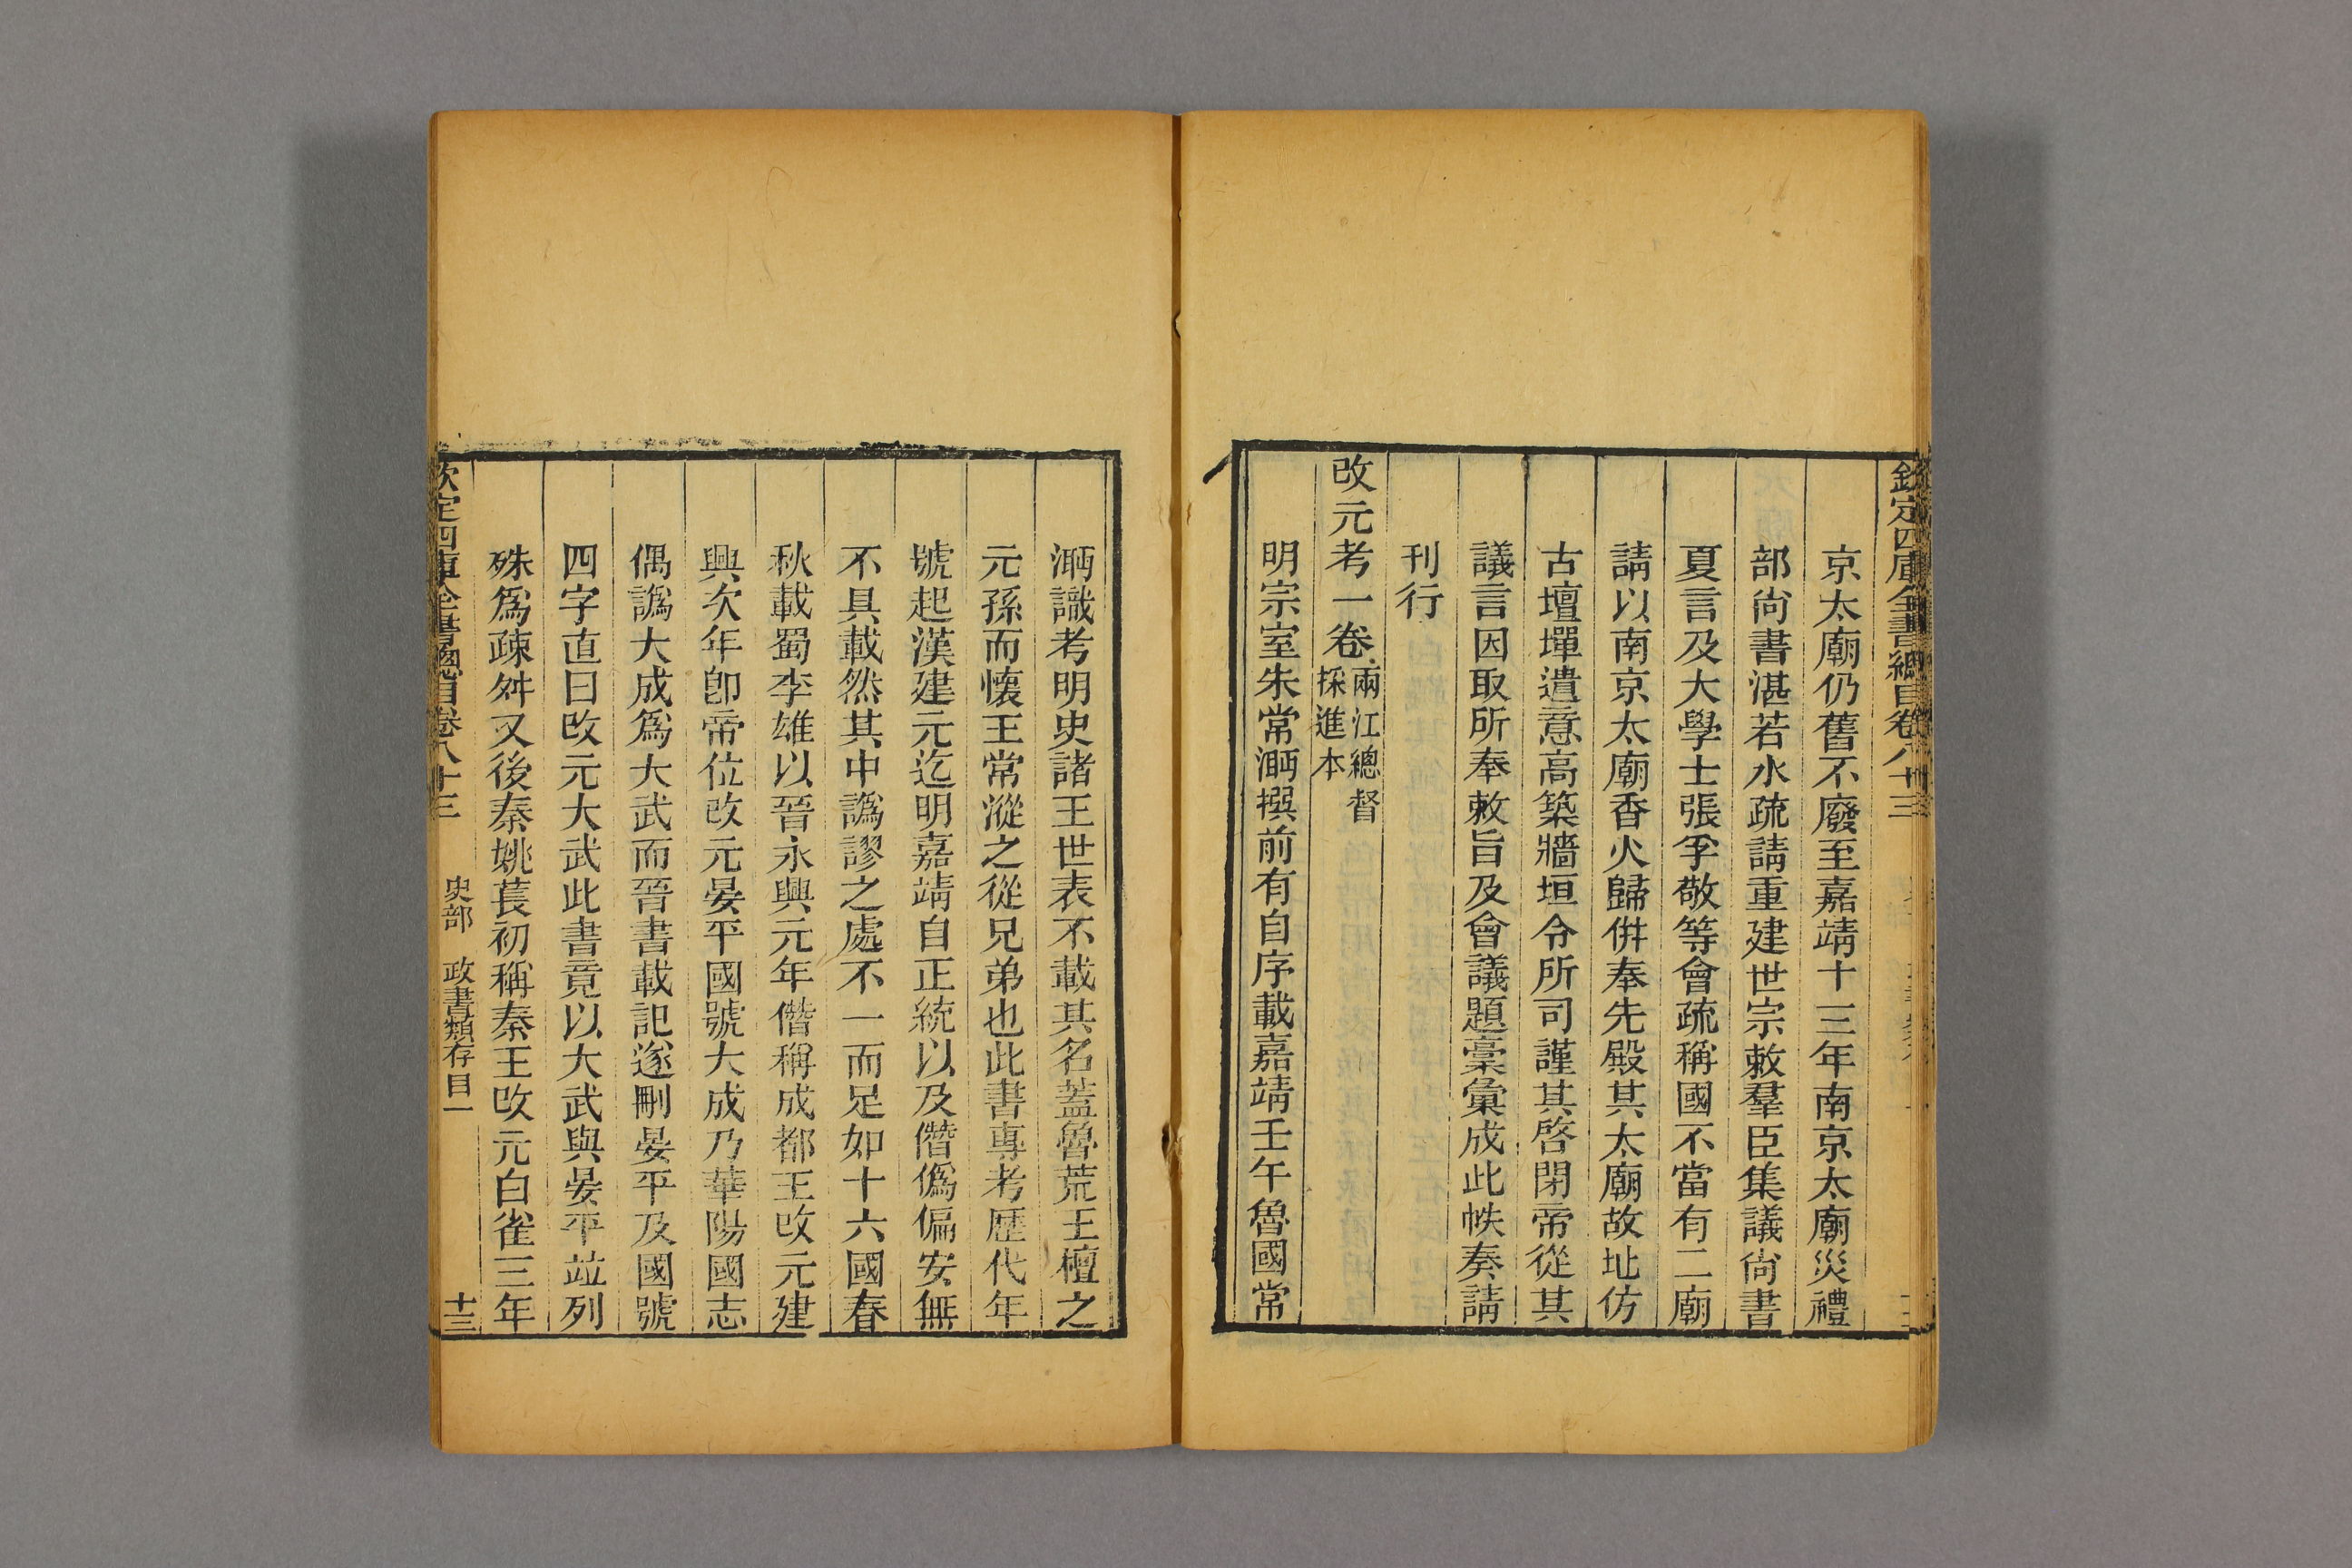 欽定四庫全書總目卷八十三
京太廟仍舊不廢至嘉靖十三年南京太廟災禮
部尚書湛若水疏請重建世宗敕羣臣集議尚書
夏言及大學士張孚敬等會疏稱國不當有二廟
請以南京太廟香火歸併奉先殿其太廟故址仿
古壇墠遺意高築牆垣令所司謹其啓閉帝從其
議言因取所奉敕旨及會議題稾彙成此帙奏請
刊行
改元考一卷兩江總督
採進本
明宗室朱常㴐撰前有自序載嘉靖壬午魯國常
㴐識考明史諸王世表不載其名蓋魯荒王檀之
元孫而懷王常漎之從兄弟也此書專考歷代年
號起漢建元迄明嘉靖自正統以及僭僞偏安無
不具載然其中譌謬之處不一而足如十六國春
秋載蜀李雄以晉永興元年僭稱成都王改元建
興次年卽帝位改元晏平國號大成乃華陽國志
偶譌大成爲大武而晉書載記遂刪晏平及國號
四字直曰改元大武此書竟以大武與晏平竝列
殊爲疎舛又後秦姚萇初稱秦王改元白雀三年
欽定四庫全書總目卷八十三 史部 政書類存目一 十三